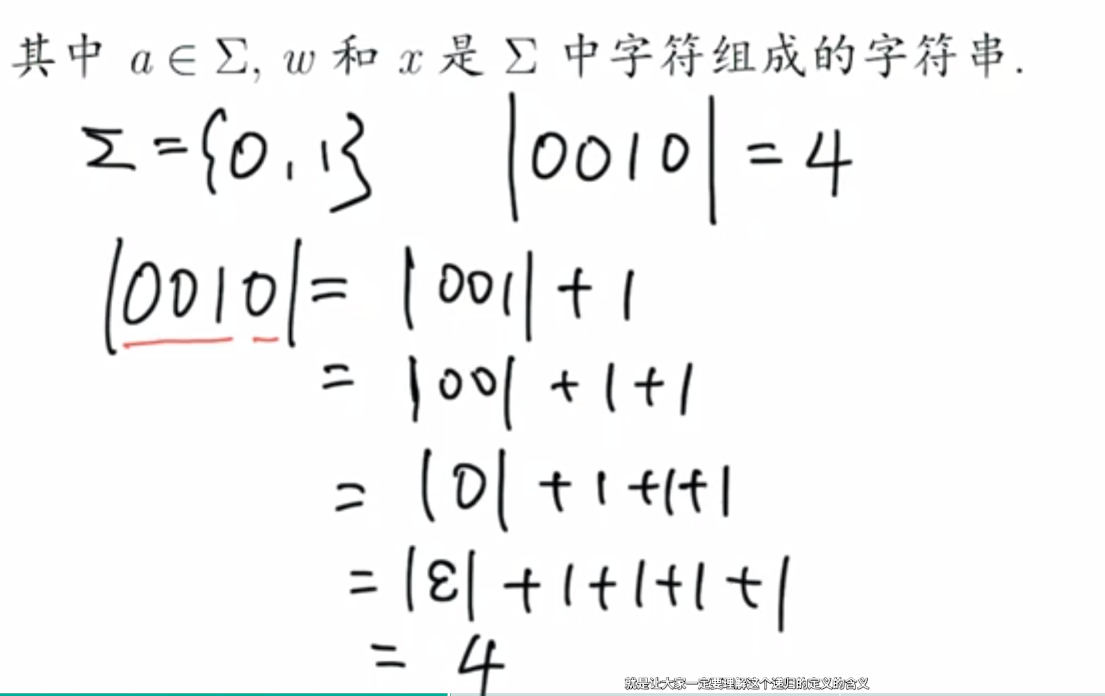 其中 a ∈ Σ, w 和 x 是 Σ 中字符组成的字符串.
Σ = {0, 1} |0010| = 4
|0010| = |001| + 1
= |00| + 1 + 1
= |0| + 1 + 1 + 1
= |ε| + 1 + 1 + 1 + 1
= 4
就是让大家一定要理解这个递归的定义的含义